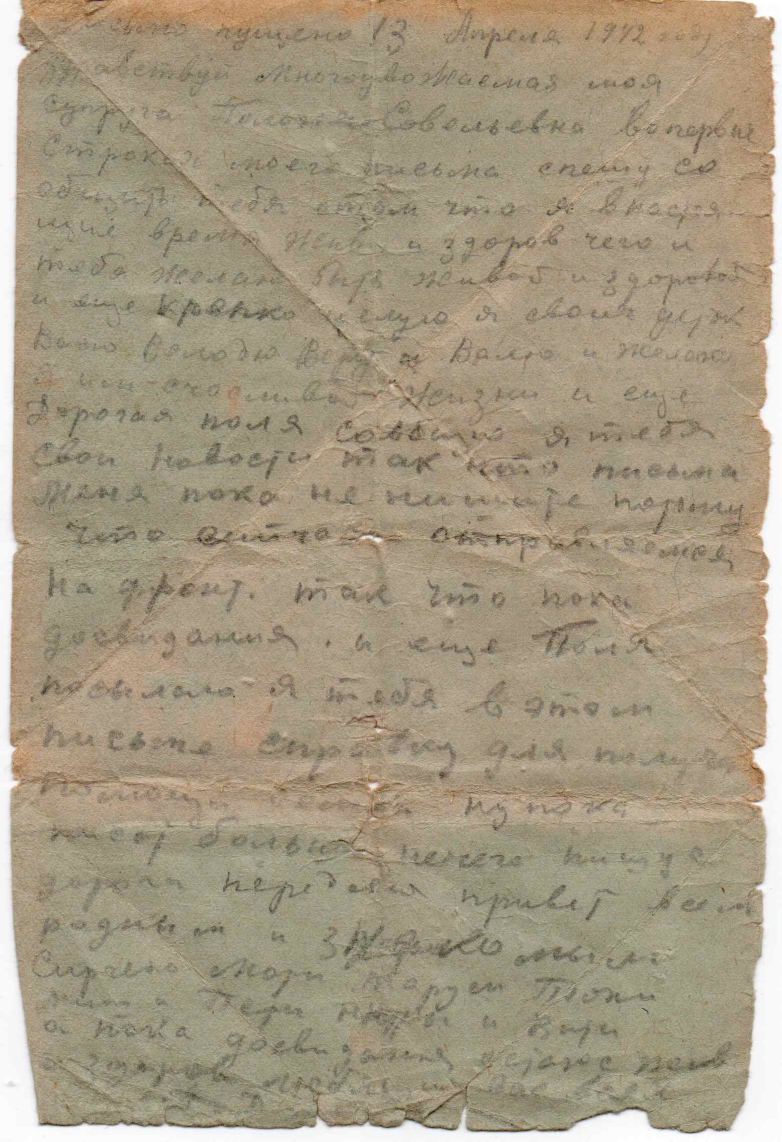 письмо пущено 13 Апреля 1942 году
Здравствуй многоуважаемая моя
супруга Полоня Совельевна вопервых
строках моего письма спешу со
общить тебя этом что я внастоя
щие время жив и здоров чего и
тебе желаю быть живой и здоровой
и еще крепко целую я своих деток
Валю и желаю
счасливой жизни и еще
Дорогая поля совощаю я тебя
свои новости так что письма
меня пока не пишите потому
что сейчас отправляемся
На фронт. так что пока
досвидания. и еще Поля
посылаю я тебя в этом
письме справку для получе
помощи ну пока
писат больше нечего пишу с
дороги передаю привет всем
родным и знакомым
Мари Маруси Тюни
Пети и Вити
а пока досвидания остаюс жив
и здоров любящий вас всех